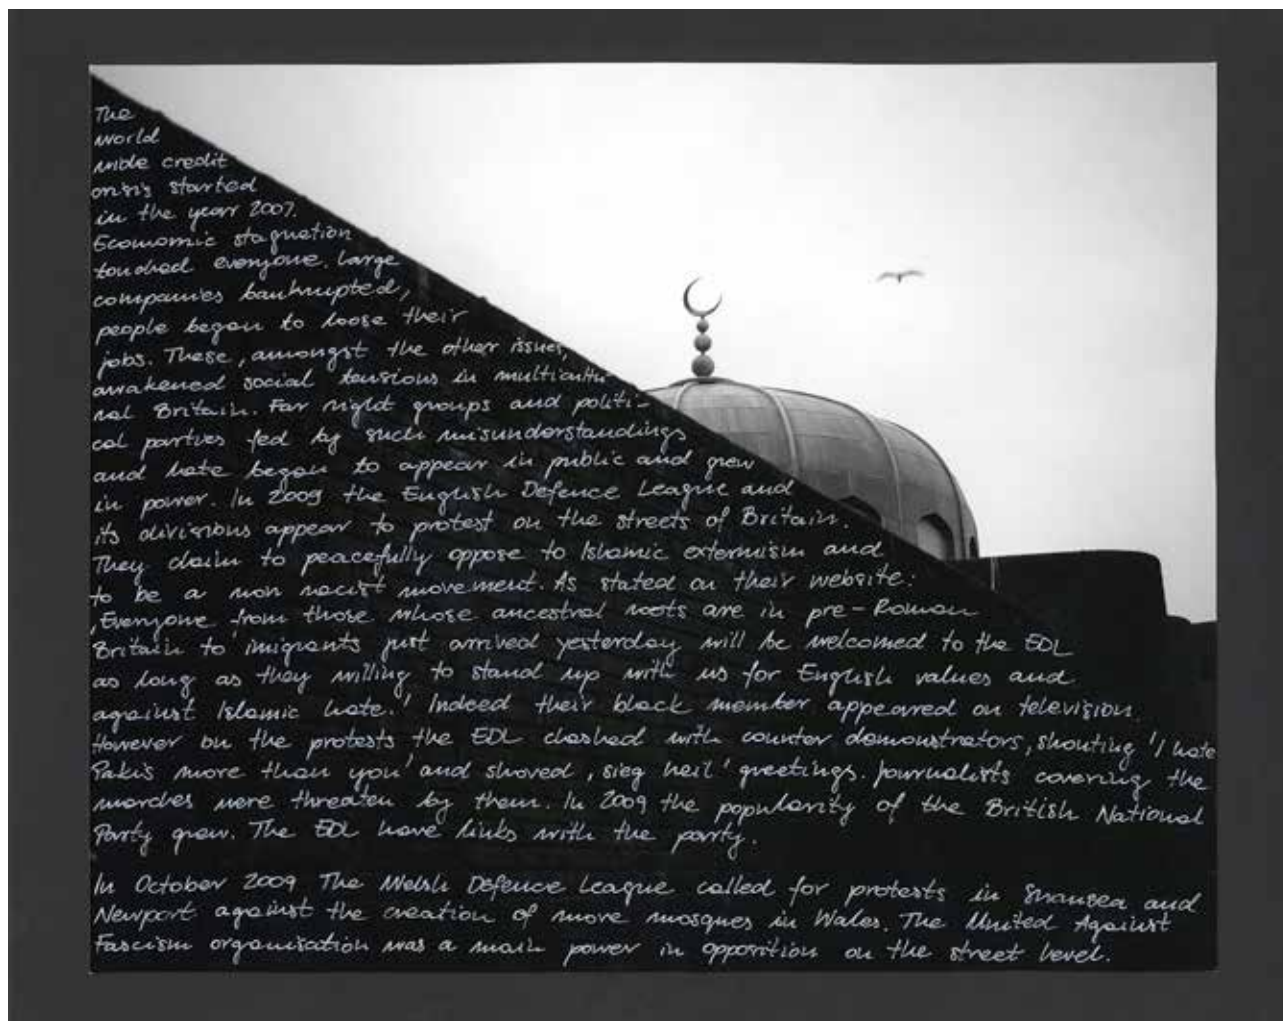 The
world
wide credit
crisis started
in the year 2007.
Economic stagnation
touched everyone. Large
companies bankrupted,
people began to loose their
jobs. These, amongst the other issues,
awakened social tensions in multicultu-
ral Britain. Far right groups and politi-
cal parties fed by such misunderstandings
and hate began to appear in public and grew
in power. In 2009 the English Defence League and
its divisions appear to protest on the streets of Britain.
They claim to peacefully oppose to Islamic extermism and
to be a non racist movement. As stated on their website:
‚Everyone from those whose ancestral roots are in pre-Roman
Britain to imigrants just arrived yesterday will be welcomed to the EDL
as long as they willing to stand up with us for English values and
against Islamic hate.' Indeed their black member appeared on television.
However on the protests the EDL clashed with counter demonstrators, shouting 'I hate
Pakis more than you' and shoved ‚sieg heil' greetings. Journalists covering the
marches were threaten by them. In 2009 the popularity of the British National
Party grew. The EDL have links with the party.
In October 2009 The Welsh Defence League called for protests in Swansea and
Newport against the creation of more mosques in Wales. The United Against
Fascism organisation was a main power in opposition on the street level.